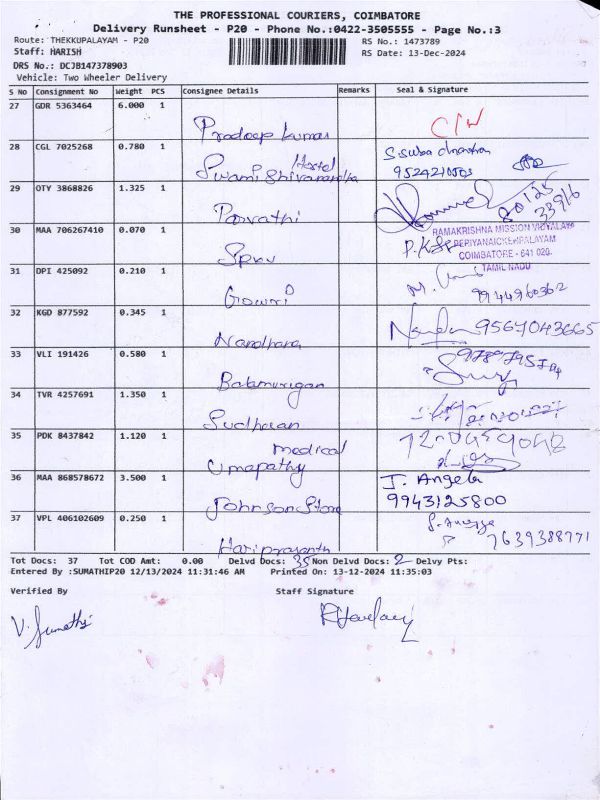 THE PROFESSIONAL COURIERS, COIMBATORE
Delivery Runsheet - P20 - Phone No.:0422-3505555 - Page No.:3
Route: THEKKUPALAYAM - P20
RS No.: 1473789
Staff: HARISH
RS Date: 13-Dec-2024
DRS No.: DCJB147378903
Vehicle: Two Wheeler Delivery
S No Consignment No Weight PCS Consignee Details Remarks Seal & Signature
27 GDR 5363464 6.000 1
Pradeep kumar
28 CGL 7025268 0.780 1
Hostel
Swami Shivananda
29 OTY 3868826 1.325 1
Parvathi
30 MAA 706267410 0.070 1
RAMAKRISHNA MISSION VIDYALAYA
PERIYANAICKENPALAYAM
COIMBATORE - 641 020.
TAMIL NADU
31 DPI 425092 0.210 1
Gowri 9944960362
32 KGD 877592 0.345 1
Nandhana Nandan 9567043665
33 VLI 191426 0.580 1
Balamurigan
34 TVR 4257691 1.350 1
Sudharan
35 PDK 8437842 1.120 1
medical
Umapathy
36 MAA 868578672 3.500 1 J. Angela
Johnson Store 9943125800
37 VPL 406102609 0.250 1
Hariprasanth 7639388771
Tot Docs: 37 Tot COD Amt: 0.00 Delvd Docs: 35 Non Delvd Docs: 2 Delvy Pts:
Entered By :SUMATHIP20 12/13/2024 11:31:46 AM Printed On: 13-12-2024 11:35:03
Verified By Staff Signature
V. Sumathi